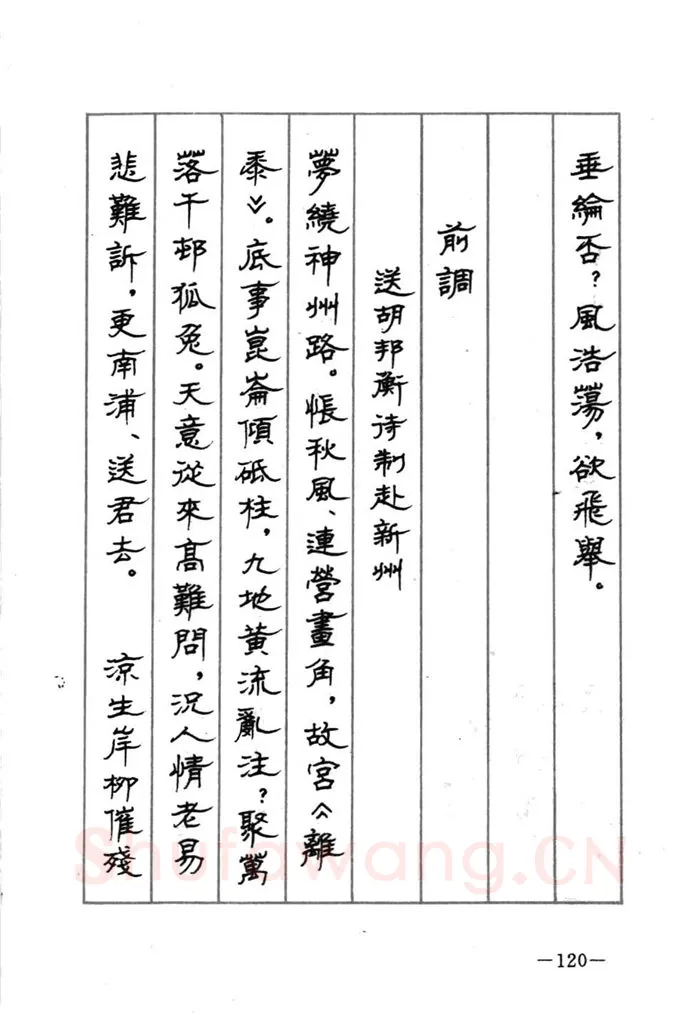 垂綸否？風浩蕩，欲飛舉。
前調
送胡邦衡待制赴新州
夢繞神州路。悵秋風、連營畫角，故宮《離
黍》。底事崑崙傾砥柱，九地黃流亂注？聚萬
落千邨狐兔。天意從來高難問，況人情老易
悲難訴，更南浦、送君去。　涼生岸柳催殘
Shufawang.CN
—120—